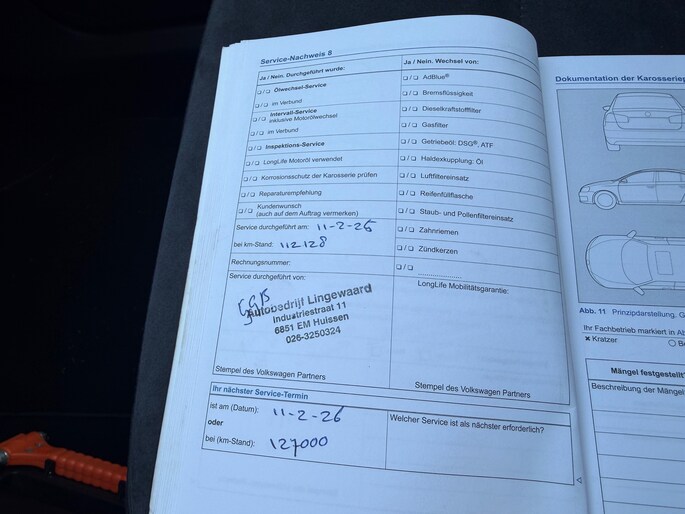 Service-Nachweis 8
Ja / Nein. Durchgeführt wurde:
Ölwechsel-Service
im Verbund
Intervall-Service
inklusive Motorölwechsel
im Verbund
Inspektions-Service
LongLife Motoröl verwendet
Korrosionsschutz der Karosserie prüfen
Reparaturempfehlung
Kundenwunsch
(auch auf dem Auftrag vermerken)
Service durchgeführt am: 11-2-25
bei km-Stand: 112128
Rechnungsnummer:
Service durchgeführt von:
Autobedrijf Lingewaard
Industriestraat 11
6851 EM Huissen
026-3250324
Stempel des Volkswagen Partners
Ja / Nein. Wechsel von:
AdBlue®
Bremsflüssigkeit
Dieselkraftstofffilter
Gasfilter
Getriebeöl: DSG®, ATF
Haldexkupplung: Öl
Luftfiltereinsatz
Reifenfüllflasche
Staub- und Pollenfiltereinsatz
Zahnriemen
Zündkerzen
LongLife Mobilitätsgarantie:
Stempel des Volkswagen Partners
Ihr nächster Service-Termin
ist am (Datum): 11-2-26
oder
bei (km-Stand): 127000
Welcher Service ist als nächster erforderlich?
Dokumentation der Karosseriep
Abb. 11 Prinzipdarstellung. G
Ihr Fachbetrieb markiert in Ab
Kratzer
Be
Mängel festgestellt?
Beschreibung der Mängel